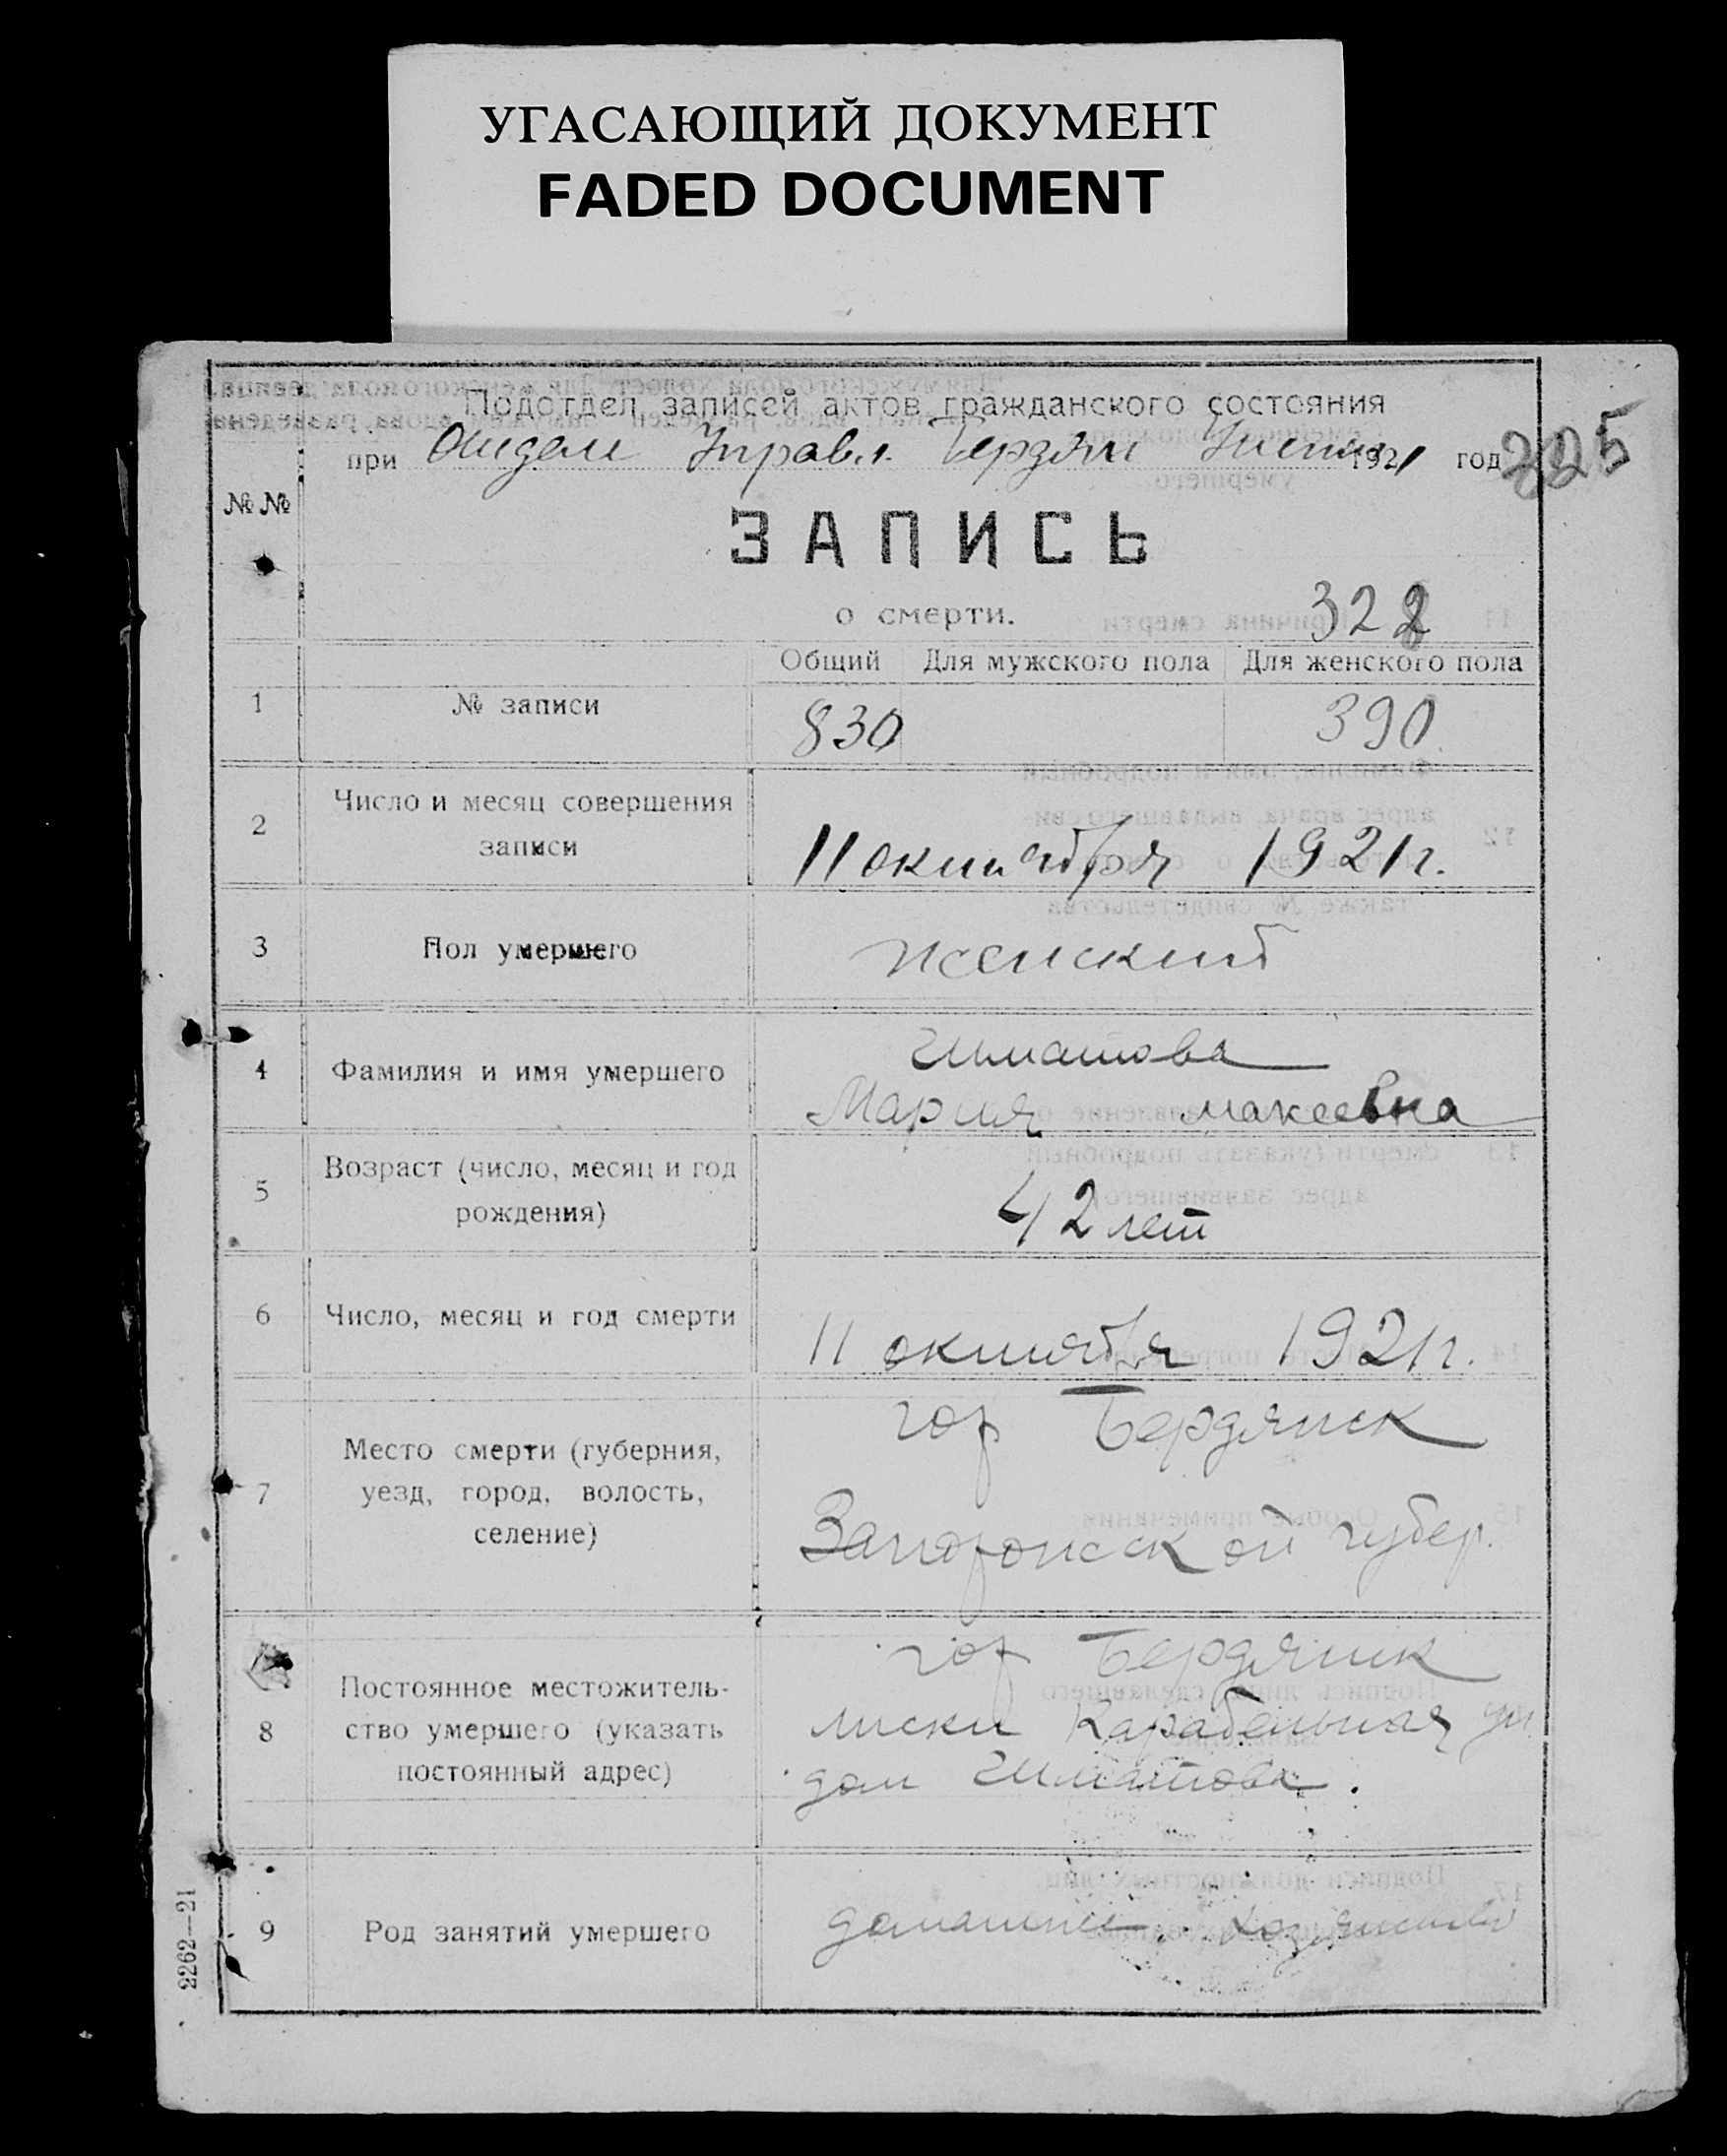 УГАСАЮЩИЙ ДОКУМЕНТ
FADED DOCUMENT
Подотдел записей актов гражданского состояния
при Отделе Управл. Бердян 1921 год 225
№ №
ЗАПИСЬ
о смерти. 322
Общий Для мужского пола Для женского пола
1 № записи 830 390
2 Число и месяц совершения
записи 11 октября 1921 г.
3 Пол умершего женский
4 Фамилия и имя умершего
Мария
5 Возраст (число, месяц и год
рождения) 42 лет
6 Число, месяц и год смерти 11 октября 1921 г.
гор Бердянск
7 Место смерти (губерния,
уезд, город, волость,
селение) Запорожской губер.
гор Бердянск
8 Постоянное местожитель-
ство умершего (указать лиски Карабельная ул
постоянный адрес) дом
9 Род занятий умершего домашнее
2262—21